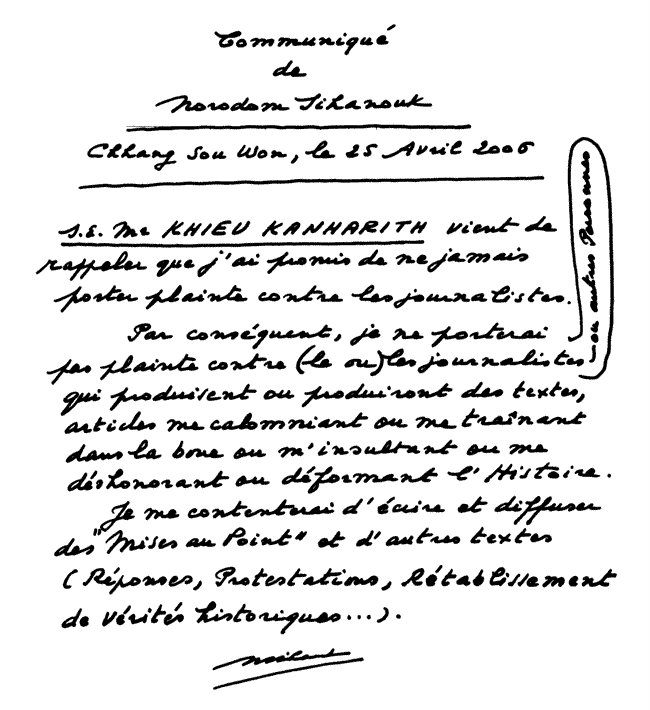 Communiqué
de
Norodom Sihanouk
Chhang Sou Won, le 25 Avril 2006
S.E. Mr KHIEU KANHARITH vient de
rappeler que j'ai promis de ne jamais
porter plainte contre les journalistes.
Par conséquent, je ne porterai
pas plainte contre (le ou) les journalistes
ou autres Personnes
qui produisent ou produiront des textes,
articles me calomniant ou me traînant
dans la boue ou m'insultant ou me
déshonorant ou déformant l'Histoire.
Je me contenterai d'écrire et diffuser
des "Mises au Point" et d'autres textes
(Réponses, Protestations, Rétablissement
de vérités historiques...).